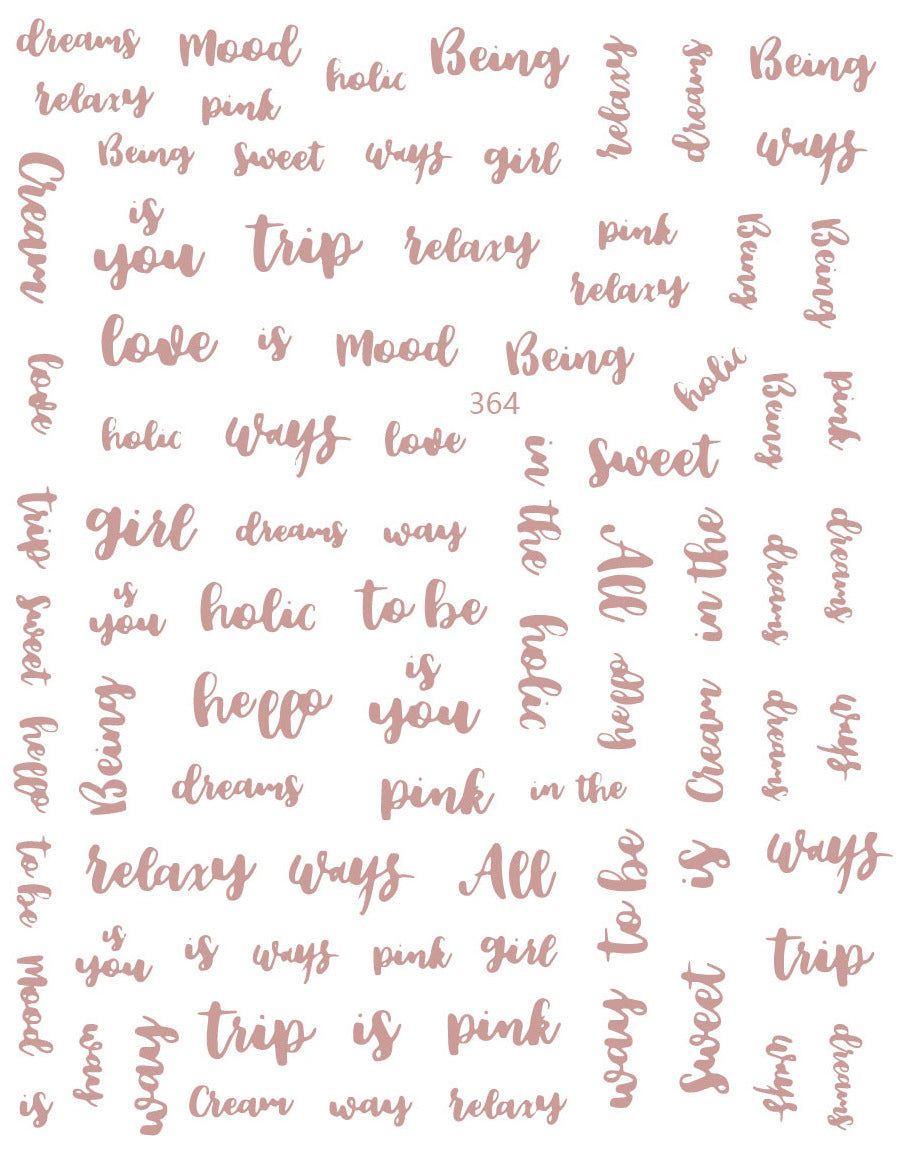 dreams Mood holic Being relaxy dreams Being
relaxy pink
Being Sweet ways girl ways
Cream
is
you trip relaxy pink Being Being
relaxy
love is Mood Being holic
love Being pink
364
holic ways love in the Sweet
trip girl dreams way All in the dreams dreams
is
you holic to be
Sweet holic
hello Being hello is
you hello Cream dreams ways
dreams pink in the
to be relaxy ways All to be is ways
is
you is ways pink girl trip
Mood way way trip is pink way Sweet ways dreams
is Cream way relaxy